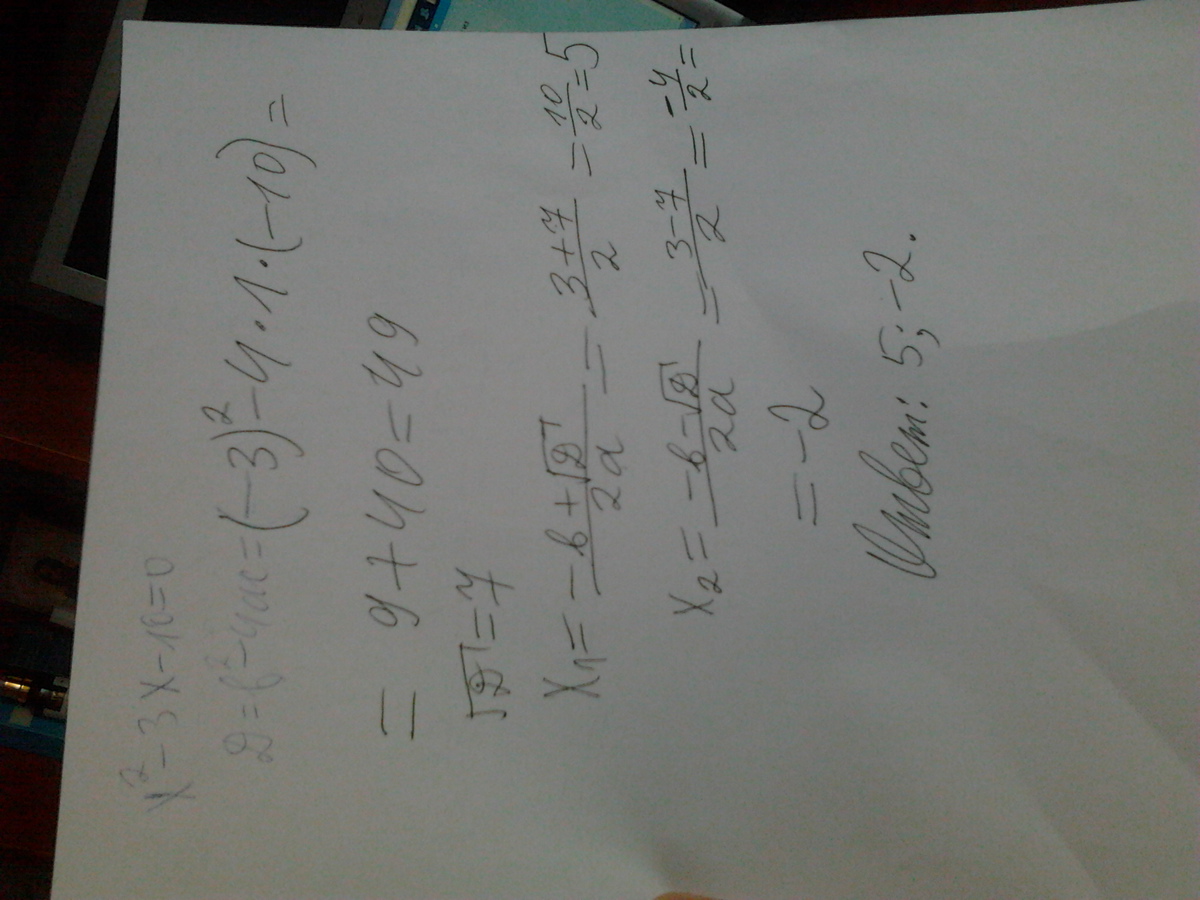 x² - 3x - 10 = 0
D = b² - 4ac = (-3)² - 4 · 1 · (-10) =
= 9 + 40 = 49
√D = 7
x₁ = (-b + √D)/2a = (3+7)/2 = 10/2 = 5
x₂ = (-b - √D)/2a = (3-7)/2 = -4/2 =
= -2
Ответ: 5; -2.